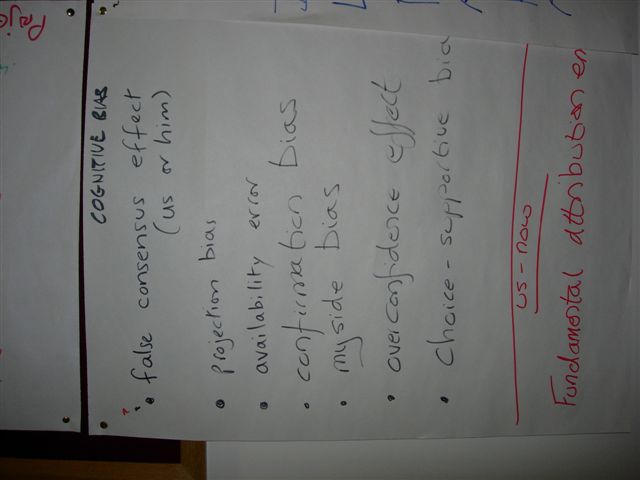 COGNITIVE BIAS
? • false consensus effect
(us or him)
• projection bias
• availability error
• confirmation bias
• myside bias
• overconfidence effect
• Choice-supportive bia
us-now
Fundamental attribution err